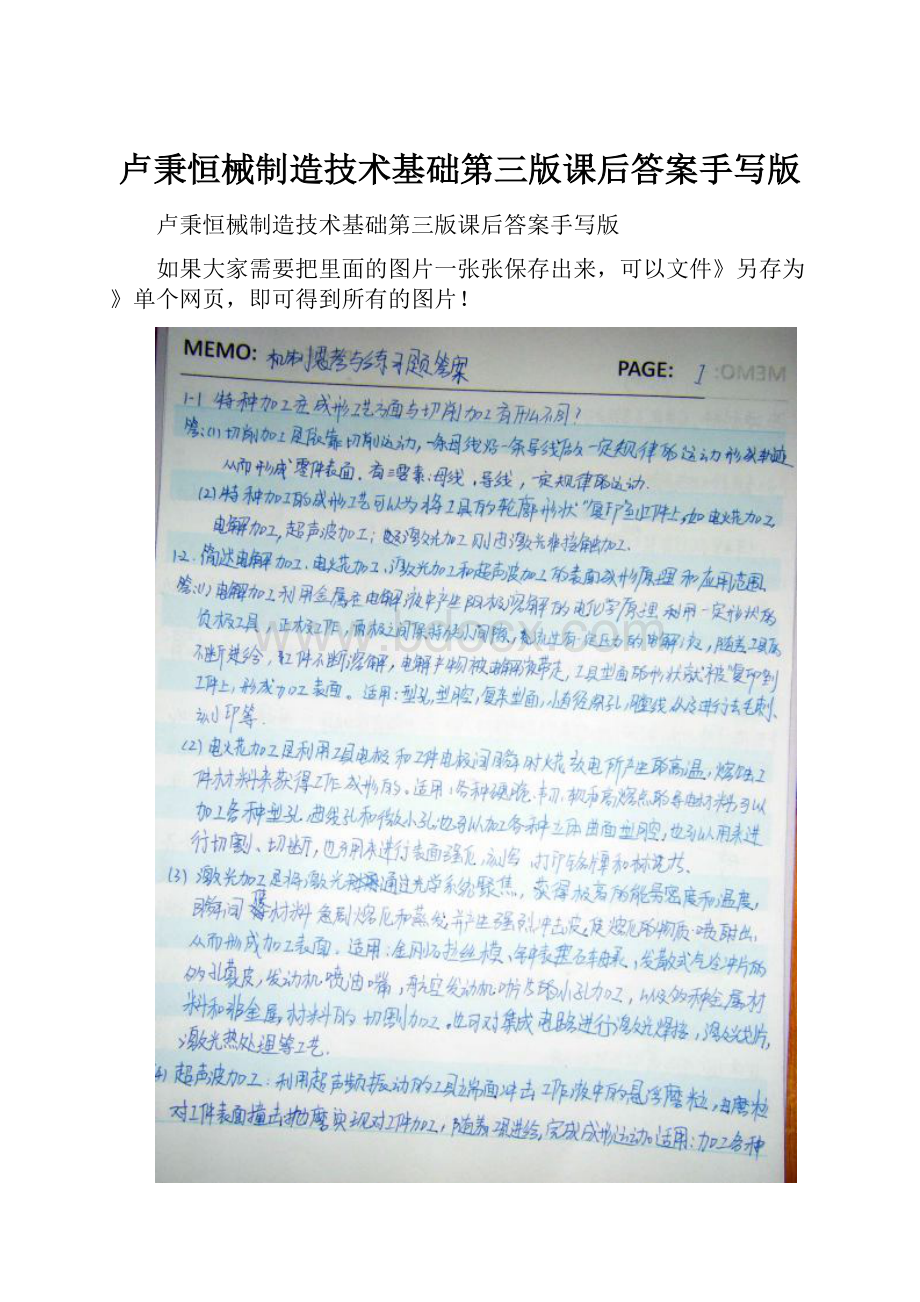 卢秉恒械制造技术基础第三版课后答案手写版
卢秉恒械制造技术基础第三版课后答案手写版
如果大家需要把里面的图片一张张保存出来，可以文件》另存为
》单个网页，即可得到所有的图片！
MEMO: 机制思考与练习题答案 PAGE: 1
1-1 特种加工在成形工艺方面与切削加工有什么不同？
答:(1)切削加工是依靠切削运动，一条母线沿一条导线做一定规律的运动形成轨迹
从而形成零件表面．有三要素:母线，导线，一定规律的运动．
(2)特种加工的成形工艺可以为将工具的轮廓形状“复印”到工件上，如电火花加工，
电解加工，超声波加工；激光加工则由激光非接触加工．
1-2．简述电解加工、电火花加工、激光加工和超声波加工的表面成形原理和应用范围．
答:(1)电解加工利用金属在电解液中产生阳极溶解的电化学原理利用一定形状的
负极工具，正极工件，两极之间保持小间隙，通过有一定压力的电解液，随着工具的
不断进给，工件不断溶解，电解产物被电解液带走，工具型面的形状就被“复印”到
工件上，形成加工表面。适用:型孔，型腔，复杂型面，小直径深孔，膛线以及进行去毛刺、
刻印等．
(2)电火花加工是利用工具电极和工件电极间瞬时火花放电所产生的高温，熔蚀工
件材料来获得工件成形的。适用:各种硬、脆、韧、软和高熔点的导电材料，可以
加工各种型孔、曲线孔和微小孔，也可以加工各种立体曲面型腔，也可以用来进
行切割、切断，也可用来进行表面强化、刻写、打印铭牌和标记等．
(3)激光加工是将激光通过光学系统聚焦，获得极高的能量密度和温度，
瞬间使材料急剧熔化和蒸发，并产生强烈冲击波，使熔化的物质喷射出，
从而形成加工表面．适用:金刚石拉丝模、钟表宝石轴承，发散式气冷冲片的
多孔蒙皮，发动机喷油嘴，航空发动机叶片等的小孔加工，以及多种金属材
料和非金属材料的切割加工。也可对集成电路进行激光焊接，激光划片，
激光热处理等工艺．
(4)超声波加工:利用超声频振动的工具端面冲击工作液中的悬浮磨粒，由磨粒
对工件表面撞击抛磨实现对工件加工，随着工具进给，完成成形运动。适用:加工各种
www.bdocx.com